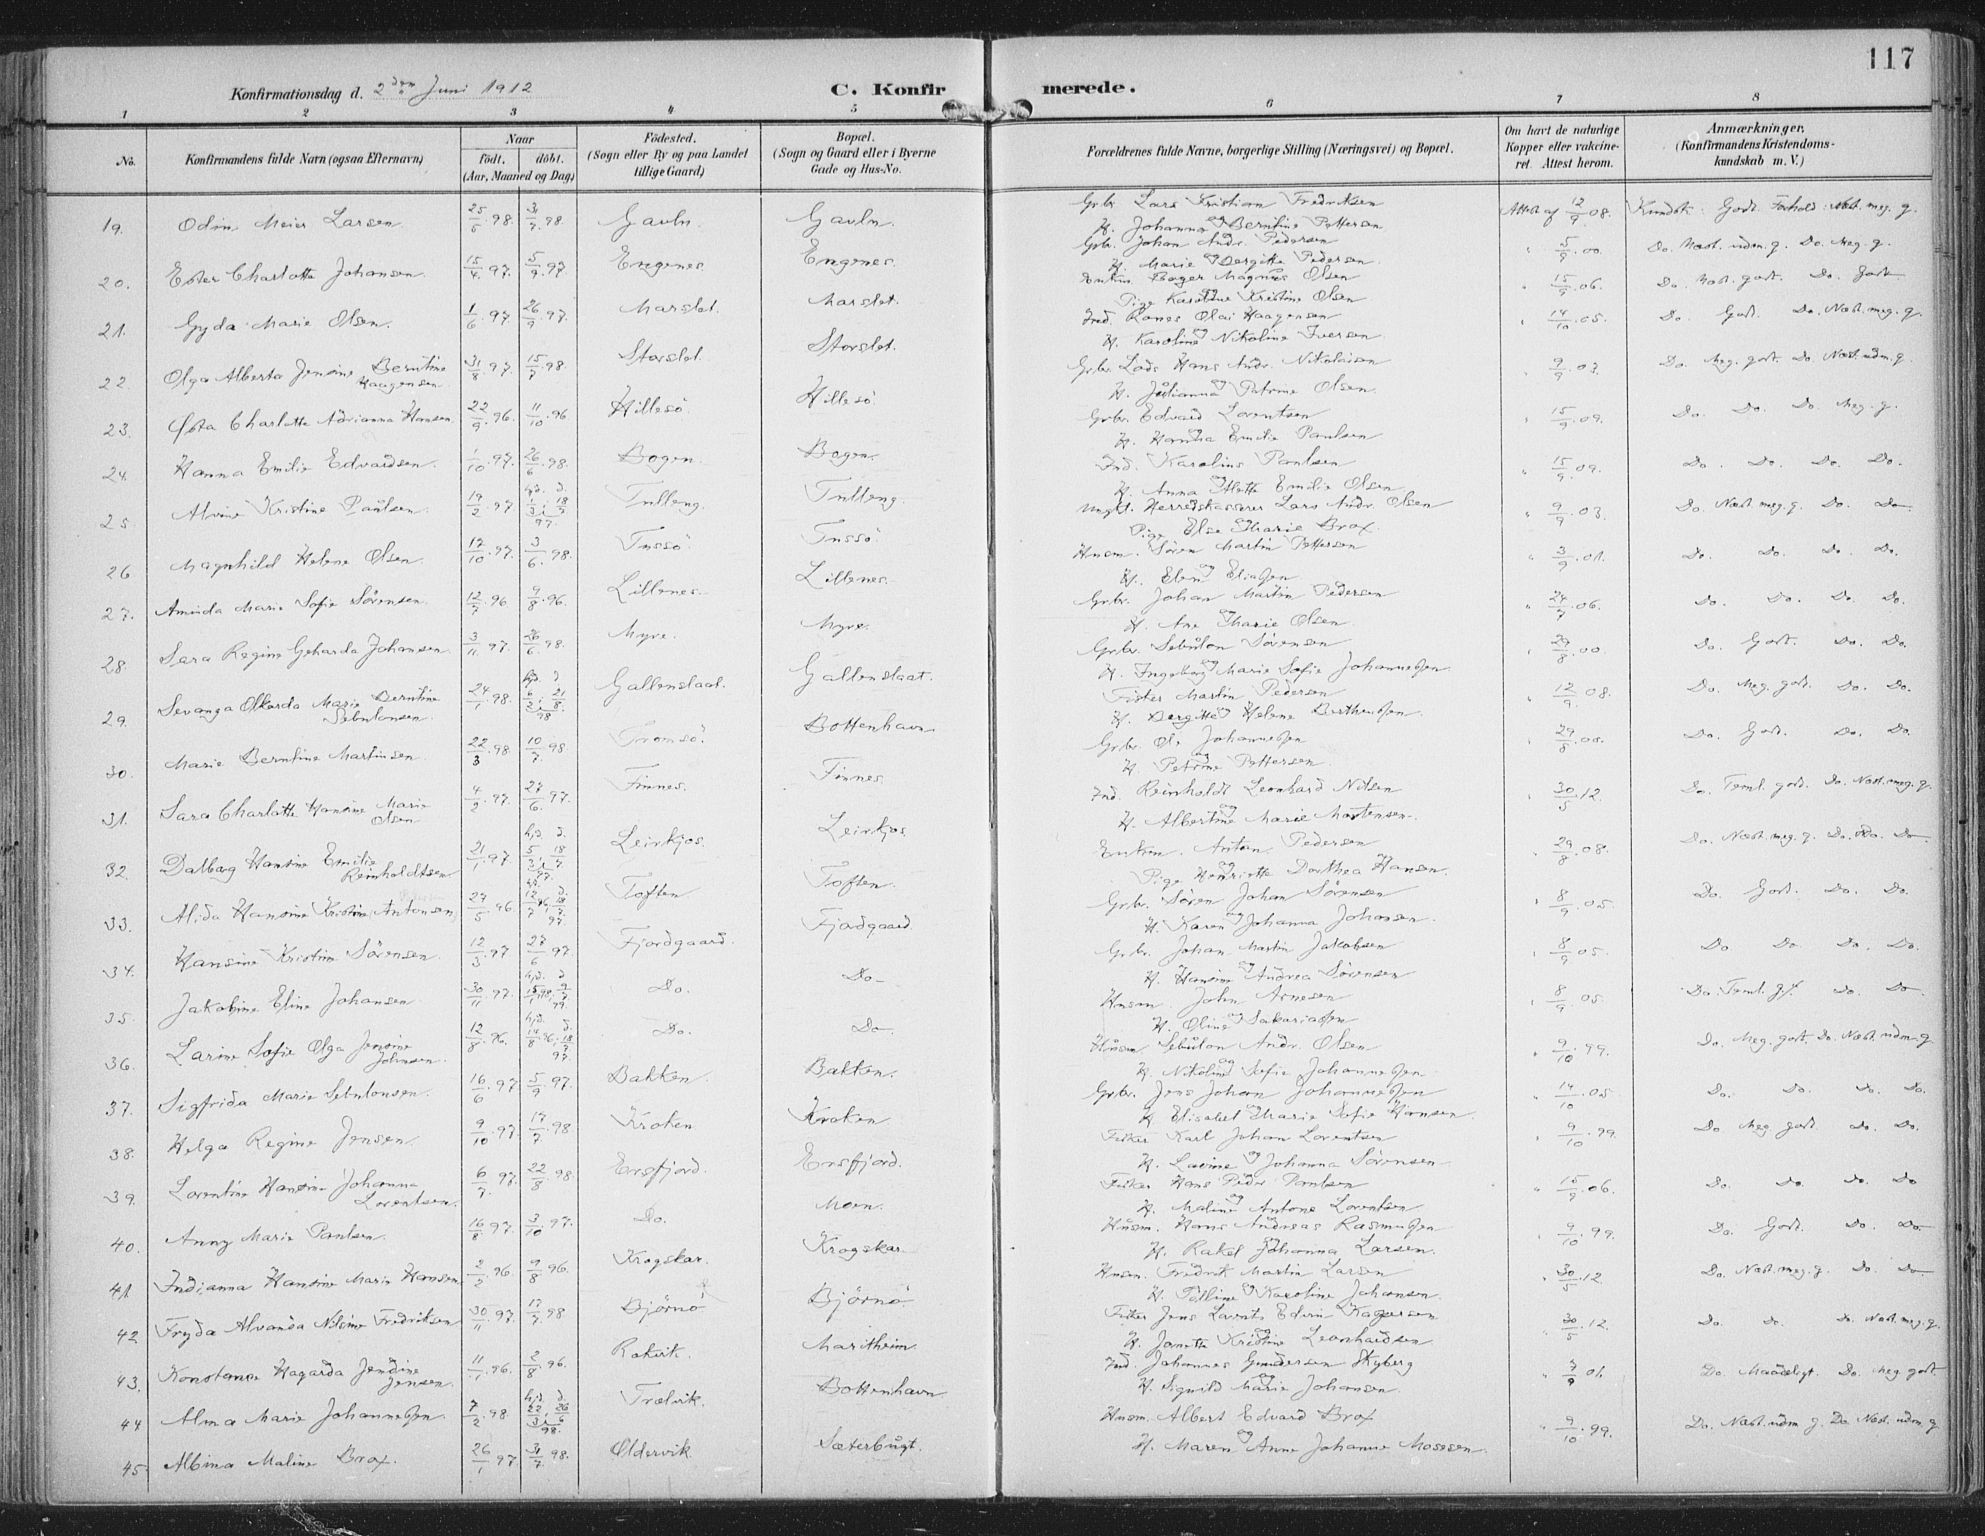 117
Konfirmationsdag d. 2den Juni 1912
C. Konfirmerede.
1 2 3 4 5 6 7 8
No.
Konfirmandens fulde Navn (ogsaa Efternavn)
Naar
födt. döbt.
(Aar, Maaned og Dag)
Födested.
(Sogn eller By og paa Landet tillige Gaard)
Bopæl.
(Sogn og Gaard eller i Byerne Gade og Hus-No.
Forældrenes fulde Navne, borgerlige Stilling (Næringsvei) og Bopæl.
Om havt de naturlige Kopper eller vakcineret. Attest herom.
Anmærkninger,
(Konfirmandens Kristendomskundskab m. V.)
19. Odin Meier Larsen 25/5 98 31/7 98 Gavln Gavln. Grbr. Lars Kristian Fredriksen
og H. Johanna Berntine Pettersen Attest af 12/9 08. Kundsk. Godt. Forhold: Næst. meg. g.
20. Ester Charlotte Johansen. 15/4 97. 5/9 97. Engenes. Engenes. Grbr. Johan Andr. Pedersen
og H. Marie Bergitte Pedersen. " 5/9 00. Do. Næst. udm. g. Do. Meg. g.
21. Gyda Marie Olsen. 1/6 97. 26/9 97. Marslet. Marslet. Roger Magnus Olsen
og Pige Karoline Kristine Olsen " 15/9 06. Do. Mst. godt. Do. Godt
22. Olga Alberta Jensine Berntine Haagensen. 31/8 97. 15/7 98. Storslet. Storslet. Ind. Olai Haagensen
og H. Karoline Nikoline Iversen " 14/10 05. Do. Godt. Do. Næst. meg. g.
23. Østa Charlotte Adrianna Hansen 22/9 96. 11/10 96 Hillesö Hillesö. Grbr. Lods Hans Andr. Nikolaisen
og H. Julianna Petrine Olsen. " 9/9 03. Do. Meg. godt. Do. Næst. udm. g.
24. Hanna Emilie Edvardsen. 1/10 97. 26/6 98. Bogen. Bogen. Grbr. Edvard Lorentsen
og H. Hansa Emilie Paulsen " 15/9 09. Do. Do. Do. Meg. g.
25. Alvine Kristine Paulsen 19/2 97 hjd. 1/3 d. i 18/7 97. Tulleng. Tulleng. Ind. Karolius Paulsen
H. Anna Alette Emilie Olsen " 15/9 09. Do. Do. Do. Do.
26 Magnhild Helene Olsen 17/10 97. 3/6 98. Tussö Tussö. Ungkl. Herredskasserer Lars Andr. Olsen
og Pige Elsa Marie Brox. " 9/9 03. Do. Næst. meg. g. Do. Do
27. Aminda Marie Sofie Sörensen. 12/7 96 9/8 96. Lillenes. Lillenes. Husm. Sören Martin Pettersen
og H. Elen Eliassen " 3/9 01. Do. Do. Do. Do.
28. Sara Regine Geharda Johansen 3/11 97. 26/6 98. Myre. Myre. Grbr. Johan Martin Pedersen
og H. Ane Marie Olsen. " 24/7 06. Do. Do. Do. Do.
29. Sevanga Olkarda Marie Berntine Sebulonsen. 24/1 98. hjd 6/2 d i 21/8 98 Gallenslaat. Gallenslaat. Grbr. Sebulon Sörensen
og H. Ingeborg Marie Sofie Johannessen. " 29/8 00 Do. Godt. Do. Do.
30. Marie Berntine Martinsen 22/3 98 10/7 98 Tromsö. Bottenhavn Fisker Martin Pedersen
og H. Bergitte Helene Berthensen. " 12/9 08. Do. Meg. godt. Do. Do.
31. Sara Charlotte Hansine Marie Olsen 4/2 97. 27/6 97. Finnes. Finnes. Grbr. Ole Johannessen
og H. Petrine Pettersen " 29/8 00. Do. Godt. Do. Do.
32. Dalborg Hansine Emilie Reinholdtsen 21/1 97 hjd. 5/3 d. i 18/7 97. Leirkjos. Leirkjos. Ind. Reinholdt Leonhard Nilsen
og H. Albertine Marie Mortensen. " 30/5 12. Do. Teml. godt. Do. Næst. meg. g.
33. Alida Hansine Kristine Antonsen 27/5 96 hjd. 12/7 96, d. 18/7 97 Toften. Toften. Enkem. Anton Pedersen
og Pige Henriette Dorthea Hansen. " 29/8 08. Do. Næst. meg. g. Do. Do. Do
34. Hansine Kristine Sörensen 12/3 97 27/6 97. Fjordgaard. Fjordgaard. Grbr. Sören Johan Sörensen
og H. Karen Johanna Johansen. " 8/9 05. Do. Godt. Do. Do.
35. Jakobine Eline Johansen 30/11 97. hjd. 15/1 98, d. 9/7 99. Do. Do. Grbr. Johan Martin Jakobsen
og H. Hansine Andrea Sörensen " 8/9 05. Do. Do. Do. Do.
36. Larine Sofie Olga Jensine Johnsen. 12/8 96. hjd. 14/8 96, d. 18/7 97. Do. Do. Husm. John Arnesen
og H. Oline Sakariassen " 8/9 05. Do. Teml. gt. Do. Do.
37. Sigfrida Marie Sebulonsen. 16/6 97 5/9 97. Bakken. Bakken. Husm. Sebulon Andr. Olsen
og H. Nikoline Sofie Johannessen. " 9/10 99. Do. Meg. godt. Do. Næst. udm. g.
38. Helga Regine Jensen. 9/10 97. 17/7 98. Kroken Kroken Grbr. Jens Johan Johannessen
og H. Elisabet Marie Sofie Hansen. " 14/10 05 Do. Do. Do. Do.
39. Lorentine Hansine Johanna Lorentsen. 6/7 97. 22/8 98. Ersfjord. Ersfjord. Fisker Karl Johan Lorentsen
og H. Lavine Johanna Sörensen " 9/10 99. Do. Meg. godt. Do. Do.
40. Anny Marie Paulsen. 16/8 97. 3/10 97. Do. Moen. Fisker Hans Peder Paulsen
og H. Maline Antone Lorentsen " 15/9 06. Do. Do. Do. Do
41. Indianna Hansine Marie Hansen 2/2 96. 9/8 96. Krogskar. Krogskar. Husm. Hans Andreas Rasmussen
og H. Rakel Johanna Larsen. " 9/10 99. Do. Godt. Do. Do
42. Fryda Alvanda Nilsine Fredriksen 30/11 97. 17/7 98 Björnö Björnö. Husm. Fredrik Martin Larsen
og H. Karoline Johansen. " 30/5 12. Do. Næst. meg. g. Do. Do
43. Konstance Hagarda Jendine Jensen. 11/1 96. 2/8 96. Rakvik. Maritheim. Fisker Jens Lorents Edvin Kaspersen
og H. Janette Kristine Leonhardsen " 30/5 12. Do. Do. Do. Næst. meg. g.
44 Alma Marie Johannessen. 7/2 98. hjd. 22/3 d. i 26/6 98. Trælvik. Bottenhavn Ind. Johannes Gundersen Skyberg
og H. Signild Marie Johansen. " 7/9 01. Do. Maadeligt. Do. Meg. godt.
45. Albina Maline Brox. 26/1 97 31/7 98. Oldervik. Sæterbugt. Husm. Albert Edvard Brox
og H. Maren Anne Johanne Mosesen. " 9/10 99. Do. Næst. udm. g. Do. Næst. udm. g.